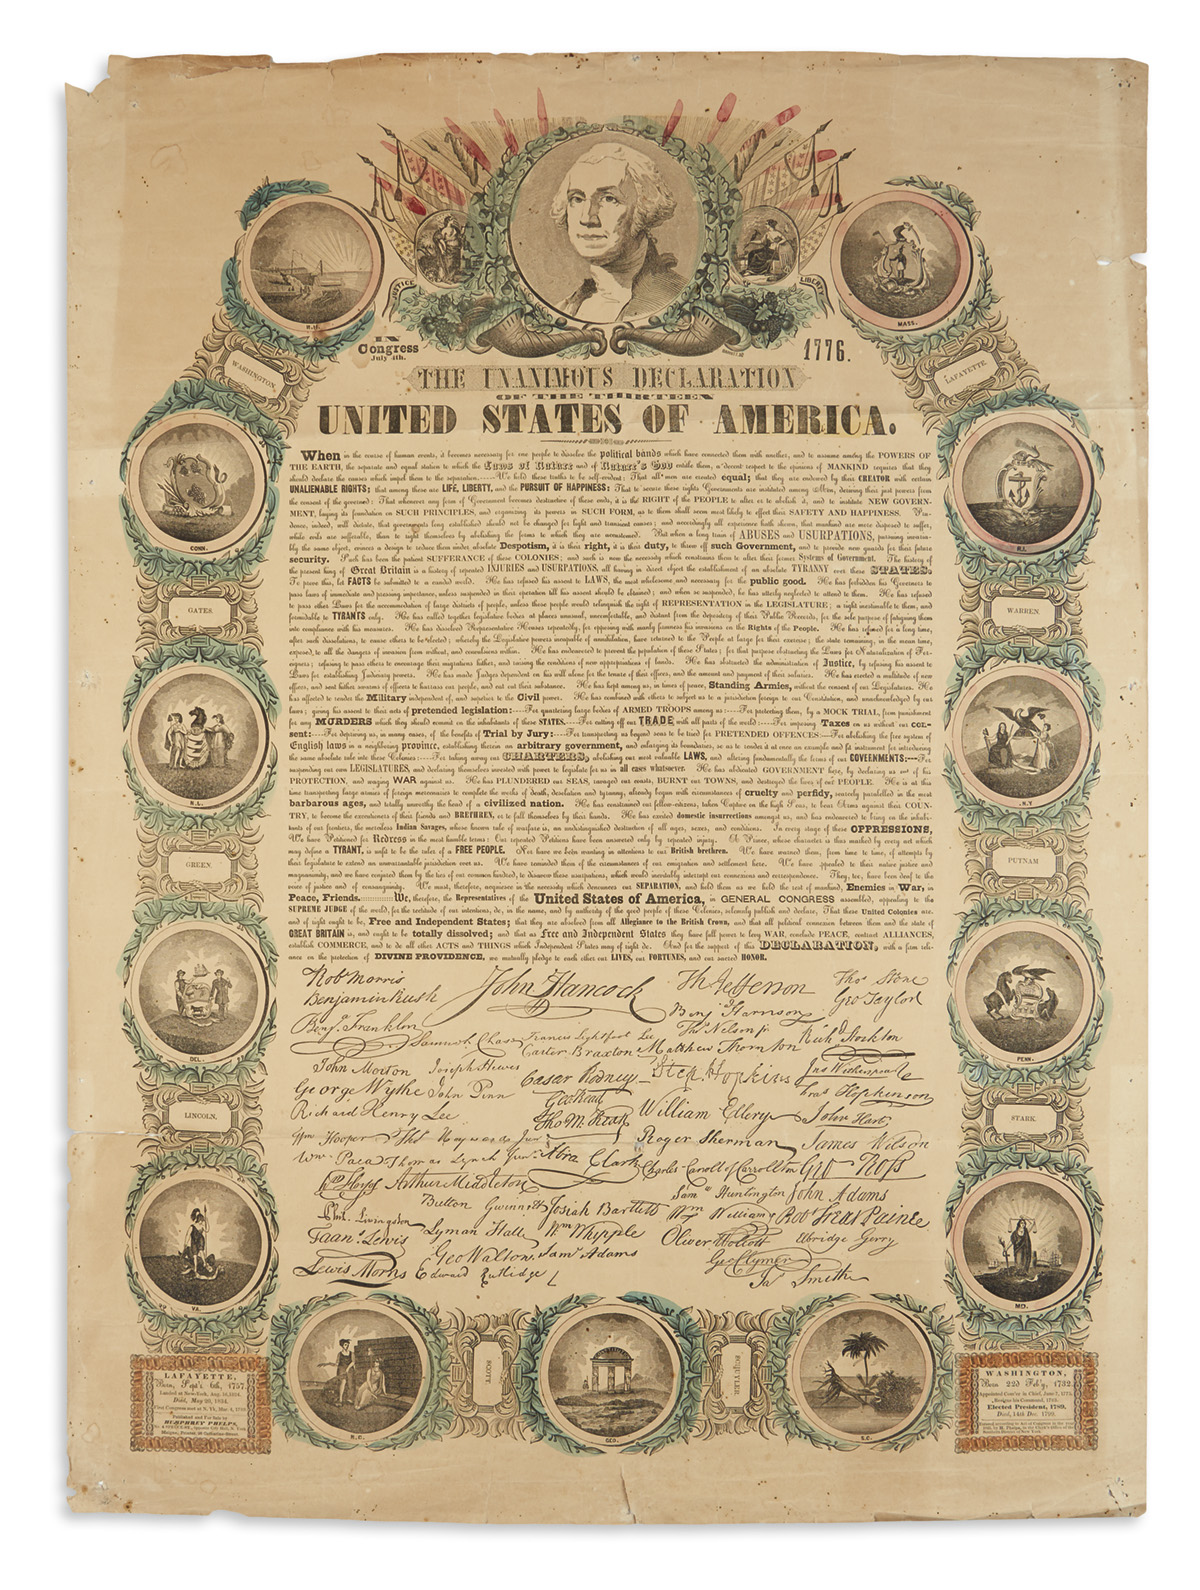 JUSTICE
LIBERTY
N.H.
MASS.
IN
Congress
July 4th.
1776.
WASHINGTON.
LAFAYETTE.
THE UNANIMOUS DECLARATION
OF THE THIRTEEN
UNITED STATES OF AMERICA.
When in the course of human events, it becomes necessary for one people to dissolve the political bands which have connected them with another, and to assume among the POWERS OF
THE EARTH, the separate and equal station to which the Laws of Nature and of Nature's God entitle them, a decent respect to the opinions of MANKIND requires that they
should declare the causes which impel them to the separation.----We hold these truths to be self-evident: That all men are created equal; that they are endowed by their CREATOR with certain
UNALIENABLE RIGHTS; that among these are LIFE, LIBERTY, and the PURSUIT OF HAPPINESS: That to secure these rights Governments are instituted among Men, deriving their just powers from
the consent of the governed: That whenever any form of Government becomes destructive of these ends, it is the RIGHT of the PEOPLE to alter or to abolish it, and to institute NEW GOVERN-
MENT, laying its foundation on SUCH PRINCIPLES, and organizing its powers in SUCH FORM, as to them shall seem most likely to effect their SAFETY AND HAPPINESS. Pru-
dence, indeed, will dictate, that governments long established should not be changed for light and transient causes; and accordingly all experience hath shown, that mankind are more disposed to suffer,
while evils are sufferable, than to right themselves by abolishing the forms to which they are accustomed. But when a long train of ABUSES and USURPATIONS, pursuing invaria-
bly the same object, evinces a design to reduce them under absolute Despotism, it is their right, it is their duty, to throw off such Government, and to provide new guards for their future
security. Such has been the patient SUFFERANCE of these COLONIES; and such is now the necessity which constrains them to alter their former Systems of Government. The history of
the present king of Great Britain is a history of repeated INJURIES and USURPATIONS, all having in direct object the establishment of an absolute TYRANNY over these STATES.
To prove this, let FACTS be submitted to a candid world. He has refused his assent to LAWS, the most wholesome and necessary for the public good. He has forbidden his Governors to
pass laws of immediate and pressing importance, unless suspended in their operation till his assent should be obtained; and when so suspended, he has utterly neglected to attend to them. He has refused
to pass other Laws for the accommodation of large districts of people, unless those people would relinquish the right of REPRESENTATION in the LEGISLATURE; a right inestimable to them, and
formidable to TYRANTS only. He has called together legislative bodies at places unusual, uncomfortable, and distant from the depository of their Public Records, for the sole purpose of fatiguing them
into compliance with his measures. He has dissolved Representative Houses repeatedly, for opposing with manly firmness his invasions on the Rights of the People. He has refused for a long time,
after such dissolutions, to cause others to be elected; whereby the Legislative powers incapable of annihilation, have returned to the People at large for their exercise; the state remaining, in the mean time,
exposed to all the dangers of invasion from without, and convulsions within. He has endeavored to prevent the population of these States; for that purpose obstructing the Laws for Naturalization of For-
eigners; refusing to pass others to encourage their migrations hither, and raising the conditions of new appropriations of lands. He has obstructed the administration of Justice, by refusing his assent to
Laws for establishing Judiciary powers. He has made Judges dependent on his will alone for the tenure of their offices, and the amount and payment of their salaries. He has erected a multitude of new
offices, and sent hither swarms of officers to harrass our people, and eat out their substance. He has kept among us, in times of peace, Standing Armies, without the consent of our Legislatures. He
has affected to render the Military independent of, and superior to the Civil power. He has combined with others to subject us to a jurisdiction foreign to our Constitution, and unacknowledged by our
laws; giving his assent to their acts of pretended legislation:----For quartering large bodies of ARMED TROOPS among us:----For protecting them, by a MOCK TRIAL, from punishment
for any MURDERS which they should commit on the inhabitants of these STATES.----For cutting off our TRADE with all parts of the world:----For imposing Taxes on us without our con-
sent:----For depriving us, in many cases, of the benefits of Trial by Jury:----For transporting us beyond seas to be tried for PRETENDED OFFENCES:----For abolishing the free system of
English laws in a neighboring province, establishing therein an arbitrary government, and enlarging its boundaries, so as to render it at once an example and fit instrument for introducing
the same absolute rule into these Colonies:----For taking away our CHARTERS, abolishing our most valuable LAWS, and altering fundamentally the forms of our GOVERNMENTS:----For
suspending our own LEGISLATURES, and declaring themselves invested with power to legislate for us in all cases whatsoever. He has abdicated GOVERNMENT here, by declaring us out of his
PROTECTION, and waging WAR against us. He has PLUNDERED our SEAS, ravaged our coasts, BURNT our TOWNS, and destroyed the lives of our PEOPLE. He is at this
time transporting large armies of foreign mercenaries to complete the works of death, desolation and tyranny, already begun with circumstances of cruelty and perfidy, scarcely paralleled in the most
barbarous ages, and totally unworthy the head of a civilized nation. He has constrained our fellow-citizens, taken Captive on the high Seas, to bear Arms against their COUN-
TRY, to become the executioners of their friends and BRETHREN, or to fall themselves by their hands. He has excited domestic insurrections amongst us, and has endeavored to bring on the inhabi-
tants of our frontiers, the merciless Indian Savages, whose known rule of warfare is, an undistinguished destruction of all ages, sexes, and conditions. In every stage of these OPPRESSIONS,
We have Petitioned for Redress in the most humble terms: Our repeated Petitions have been answered only by repeated injury. A Prince, whose character is thus marked by every act which
may define a TYRANT, is unfit to be the ruler of a FREE PEOPLE. Nor have we been wanting in attentions to our British brethren. We have warned them, from time to time, of attempts by
their legislature to extend an unwarrantable jurisdiction over us. We have reminded them of the circumstances of our emigration and settlement here. We have appealed to their native justice and
magnanimity, and we have conjured them by the ties of our common kindred, to disavow these usurpations, which would inevitably interrupt our connexions and correspondence. They, too, have been deaf to the
voice of justice and of consanguinity. We must, therefore, acquiesce in the necessity which denounces our SEPARATION, and hold them as we hold the rest of mankind, Enemies in War; in
Peace, Friends.----We, therefore, the Representatives of the United States of America, in GENERAL CONGRESS assembled, appealing to the
SUPREME JUDGE of the world, for the rectitude of our intentions, do, in the name, and by authority of the good people of these Colonies, solemnly publish and declare, That these United Colonies are,
and of right ought to be, Free and Independent States; that they are absolved from all Allegiance to the British Crown, and that all political connexion between them and the state of
GREAT BRITAIN is, and ought to be totally dissolved; and that as Free and Independent States they have full power to levy WAR, conclude PEACE, contract ALLIANCES,
establish COMMERCE, and to do all other ACTS and THINGS which Independent States may of right do. And for the support of this DECLARATION, with a firm reli-
ance on the protection of DIVINE PROVIDENCE, we mutually pledge to each other our LIVES, our FORTUNES, and our sacred HONOR.
Robt Morris John Hancock Th Jefferson Thos Stone
Benjamin Rush Benj Harrison Geo Taylor
Benj. Franklin Samuel Chase Francis Lightfoot Lee Thos Nelson jr Richd Stockton
Carter Braxton Matthew Thornton
John Morton Joseph Hewes Caesar Rodney Step. Hopkins Jno Witherspoon
George Wythe John Penn Geo Read Fras Hopkinson
Richard Henry Lee Tho M. Kean William Ellery John Hart
Wm Hooper Thos Heyward Junr Roger Sherman James Wilson
Wm Paca Thomas Lynch Junr Abra Clark Charles Carroll of Carrollton Geo Ross
Arthur Middleton Saml Huntington John Adams
Button Gwinnett Josiah Bartlett Wm Williams Robt Treat Paine
Phil. Livingston Lyman Hall Wm Whipple Oliver Wolcott Elbridge Gerry
Frans Lewis Geo Walton Saml Adams Geo Clymer
Lewis Morris Edward Rutledge Jas Smith
CONN.
R.I.
GATES.
WARREN.
N.J.
N.Y
GREEN.
PUTNAM
DEL.
PENN.
LINCOLN.
STARK.
VA.
MD.
N.C.
SCOTT
GEO.
SCHUYLER
S.C.
LAFAYETTE,
Born, Sept. 6th, 1757
Landed at New-York, Aug. 16, 1824.
Died, May 20, 1834.
Published and For Sale by
HUMPHREY PHELPS,
WASHINGTON,
Born 22d Feb'y, 1732.
Appointed Com'er in Chief, June 7, 1775.
Resigns his Command, 1783.
Elected President, 1789.
Died, 14th Dec. 1799.